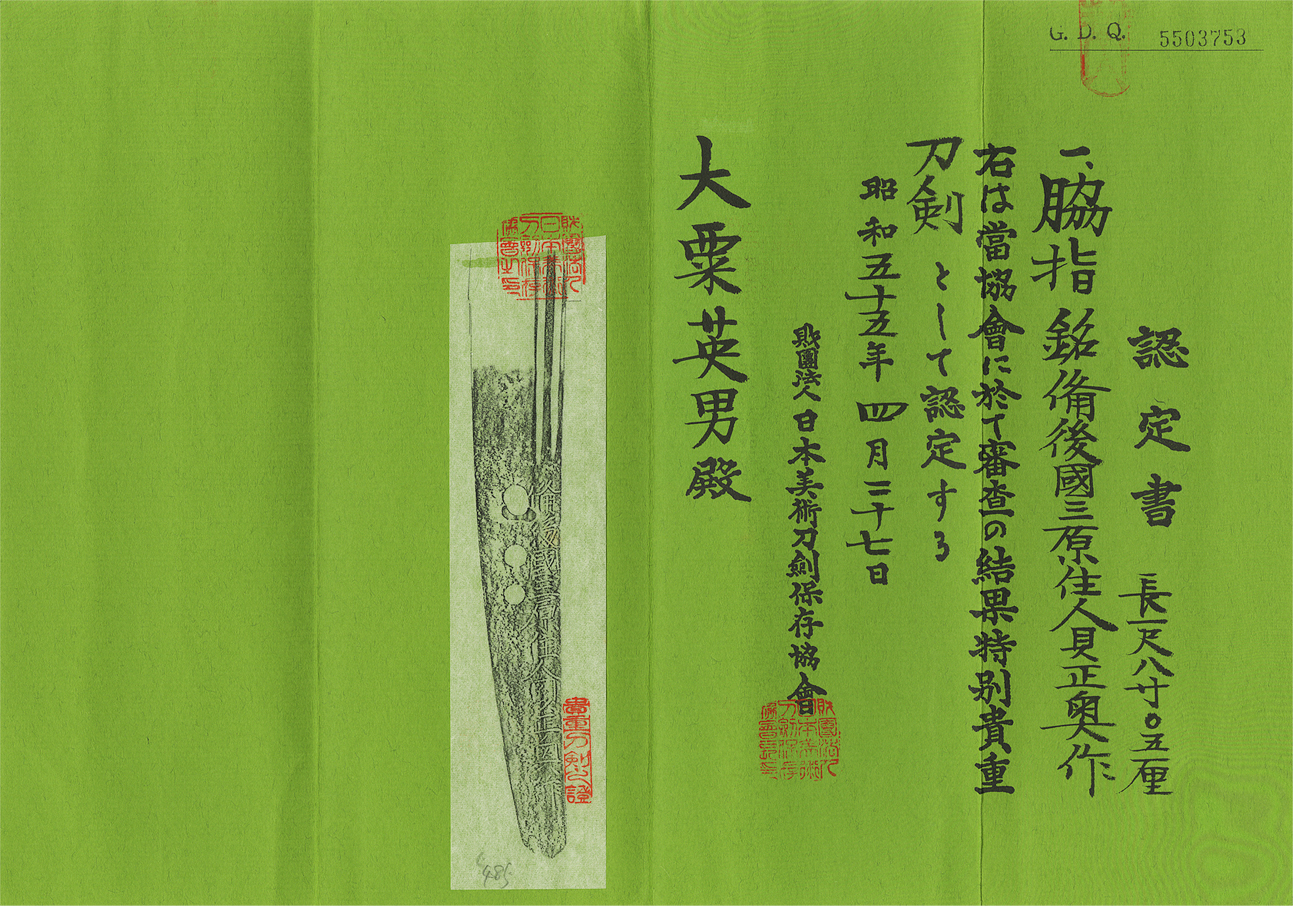 G. D. Q. 5503753
認定書
長一尺八寸〇五厘
一、脇指 銘備後國三原住人貝正奥作
右は當協會に於て審査の結果特別貴重
刀剣として認定する
昭和五十五年四月二十七日
財團法人日本美術刀劍保存協會
大粟英男殿
貴重刀剣之證
485